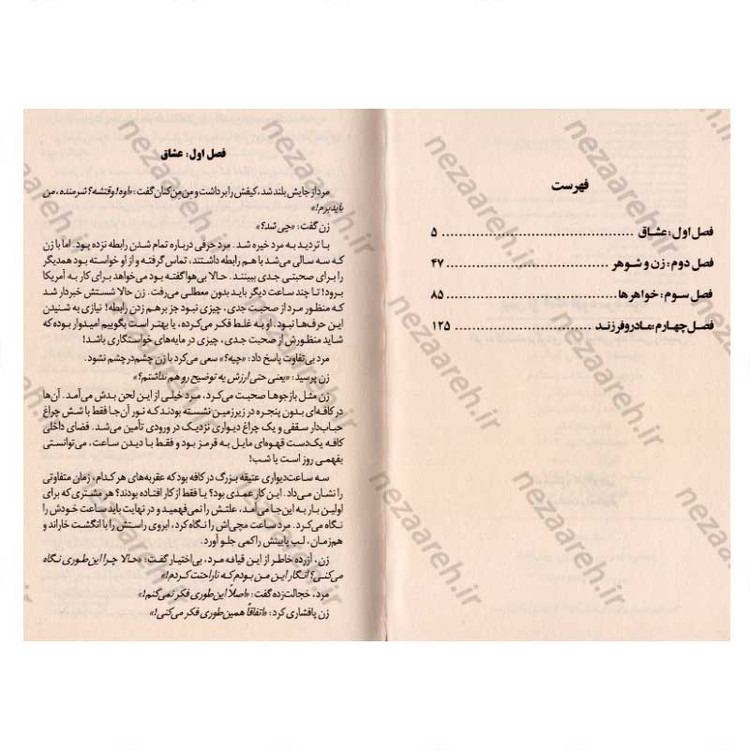 فهرست
فصل اول: عشاق ........................................ ۵
فصل دوم: زن و شوهر ........................................ ۴۷
فصل سوم: خواهرها ........................................ ۸۵
فصل چهارم: مادر و فرزند ........................................ ۱۲۵
فصل اول: عشاق
مرد از جایش بلند شد، کیفش را برداشت و مِن‌مِن‌کنان گفت: «اوه! وقتشه؟ شرمنده، من
باید برم!»
زن گفت: «چی شد؟»
با تردید به مرد خیره شد. مرد حرفی درباره تمام شدن رابطه نزده بود. اما با زن
که سه سالی می‌شد با هم رابطه داشتند، تماس گرفته و از او خواسته بود همدیگر
را برای صحبتی جدی ببینند. حالا بی‌هوا گفته بود می‌خواهد برای کار به آمریکا
برود! تا چند ساعت دیگر باید بدون معطلی می‌رفت. زن حالا شستش خبردار شد
که؛ منظور از صحبت جدی، چیزی نبود جز برهم زدن رابطه! نیازی به شنیدن
این حرف‌ها نبود. او به غلط فکر می‌کرده، یا بهتر است بگوییم امیدوار بوده که
شاید منظورش از صحبت جدی، چیزی در مایه‌های خواستگاری باشد!
مرد بی‌تفاوت پاسخ داد: «چیه؟» سعی می‌کرد با زن چشم‌درچشم نشود.
زن پرسید: «یعنی حتی ارزش یه توضیح رو هم نداشتم؟»
زن مثل بازجوها صحبت می‌کرد، مرد خیلی از این لحن بدش می‌آمد. آن‌ها
در کافه‌ای بدون پنجره در زیرزمین نشسته بودند که نور آن‌جا فقط با شش چراغ
حباب‌دار سقفی و یک چراغ دیواری نزدیک در ورودی تأمین می‌شد. فضای داخلی
کافه یک‌دست قهوه‌ای مایل به قرمز بود و فقط با دیدن ساعت، می‌توانستی
بفهمی روز است یا شب!
سه ساعت‌دیواری عتیقه بزرگ در کافه بود که عقربه‌های هر کدام، زمان متفاوتی
را نشان می‌داد. این کار عمدی بود؟ یا فقط از کار افتاده بودند؟ هر مشتری که برای
اولین بار به این‌جا می‌آمد، علتش را نمی‌فهمید و در نهایت باید ساعت خودش را
نگاه می‌کرد. مرد ساعت مچی‌اش را نگاه کرد، ابروی راستش را با انگشت خاراند و
هم‌زمان، لب پایینش را کمی جلو آورد.
زن، آزرده خاطر از این قیافه مرد، بی‌اختیار گفت: «حالا چرا این‌طوری نگاه
می‌کنی؟ انگار این من بودم که ناراحتت کردم!»
مرد، خجالت‌زده گفت: «اصلاً این‌طوری فکر نمی‌کنم!»
زن پافشاری کرد: «اتفاقاً همین‌طوری فکر می‌کنی!»
nezaareh.ir